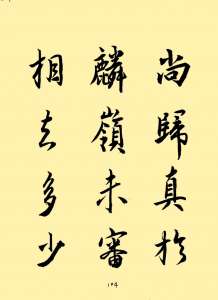 尚歸真於
麟嶺未審
相去多少